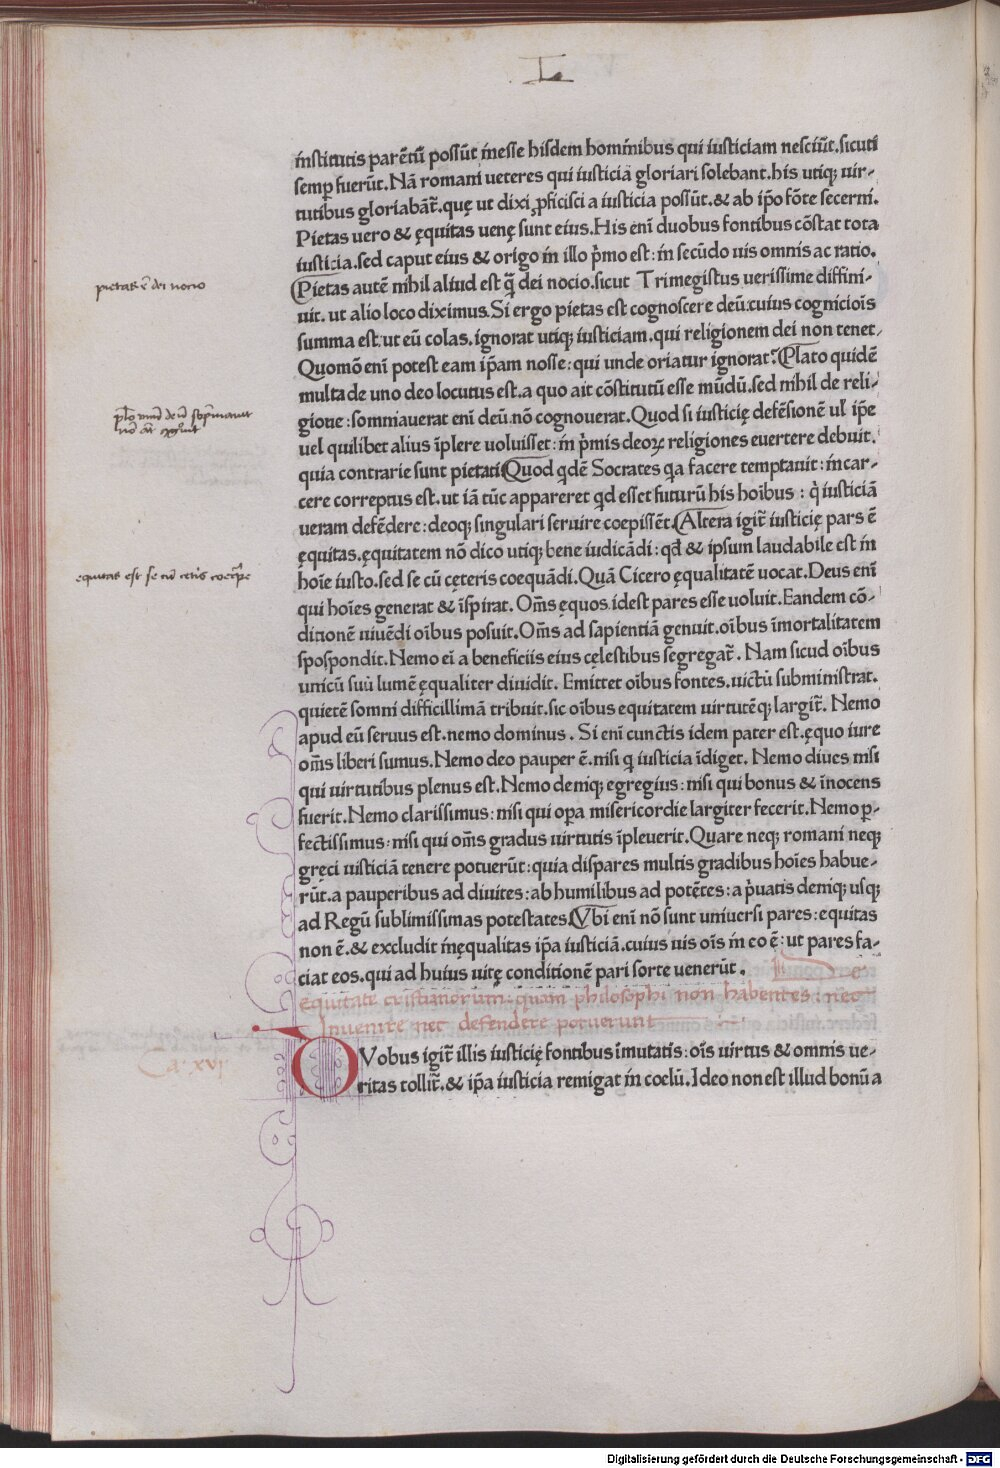 L
institutis parẽtũ possũt inesse hisdem hominibus qui iusticiam nesciũt. sicuti
semꝑ fuerũt. Nã romani ueteres qui iusticiã gloriari solebant. his utiqꝫ uir-
tutibus gloriabãt̃. quę ut dixi ꝓficisci a iusticia possũt. & ab ip̃o fõte secerni.
Pietas uero & ęquitas uenę sunt eius. His eni duobus fontibus cõstat tota
iusticia. sed caput eius & origo in illo p̃mo est: in secũdo uis omnis ac ratio.
Pietas autẽ nihil aliud est q̃ dei nocio. sicut Trimegistus uerissime diffini-
uit. ut alio loco diximus. Si ergo pietas est cognoscere deũ. cuius cognicio̅is
summa est. ut eũ colas. ignorat utiqꝫ iusticiam. qui religionem dei non tenet.
Quomõ eni potest eam ip̃am nosse: qui unde oriatur ignorat? Plato quidẽ
multa de uno deo locutus est. a quo ait cõstitutũ esse mũdũ. sed nihil de reli-
gione: somniauerat eni deũ. nõ cognouerat. Quod si iusticię defẽsionẽ ul̃ ip̃e
uel quilibet alius ĩplere uoluisset: in p̃mis deoꝝ religiones euertere debuit.
quia contrarie sunt pietati Quod qdẽ Socrates qa facere temptauit: in car-
cere correptus est. ut iã tũc appareret qd esset futurũ his hoĩbus: q̃ iusticiã
ueram defẽdere: deoqꝫ singulari seruire coepissẽt. Altera igit̃ iusticię pars ẽ
ęquitas. ęquitatem nõ dico utiqꝫ bene iudicãdi: qd̃ & ipsum laudabile est in
hoĩe iusto. sed se cũ cęteris coequãdi. Quã Cicero ęqualitatẽ uocat. Deus eni
qui hoĩes generat & ĩspirat. Om̃s ęquos. idest pares esse uoluit. Eandem cõ-
ditionẽ uiuẽdi oĩbus posuit. Om̃s ad sapientiã genuit. oĩbus ĩmortalitatem
spospondit. Nemo ei a beneficiis eius cęlestibus segregat̃. Nam sicud oĩbus
unicũ suũ lumẽ ęqualiter diuidit. Emittet oĩbus fontes. uictũ subministrat.
quietẽ somni difficillimã tribuit. sic oĩbus equitatem uirtutẽqꝫ largit̃. Nemo
apud eũ seruus est. nemo dominus. Si eni cunctis idem pater est. ęquo iure
om̃s liberi sumus. Nemo deo pauper ẽ. nisi q iusticia ĩdiget. Nemo diues nisi
qui uirtutibus plenus est. Nemo deniqꝫ egregius: nisi qui bonus & ĩnocens
fuerit. Nemo clarissimus: nisi qui oꝑa misericordie largiter fecerit. Nemo ꝑ-
fectissimus: nisi qui om̃s gradus uirtutis ĩpleuerit. Quare neqꝫ romani neqꝫ
gręci iusticiã tenere potuerũt: quia dispares multis gradibus hoĩes habue-
rũt. a pauperibus ad diuites: ab humilibus ad potẽtes: a p̃uatis deniqꝫ usqꝫ
ad Regũ sublimissimas potestates. Vbi eni nõ sunt uniuersi pares: equitas
non ẽ. & excludit inęqualitas ip̃a iusticiã. cuius uis oĩs in eo ẽ: ut pares fa-
ciat eos. qui ad huius uitę conditionẽ pari sorte uenerũt.
De
Equitate cristianorum: quam philosophi non habentes: nec
Inuenire nec defendere potuerunt
DVobus igit̃ illis iusticię fontibus ĩmutatis: oĩs uirtus & omnis ue-
ritas tollit̃. & ip̃a iusticia remigat in coelũ. Ideo non est illud bonũ a
pietas ẽ dei nocio
equitas est se cũ ceteris
Ca. XVI
Digitalisierung gefördert durch die Deutsche Forschungsgemeinschaft - DFG